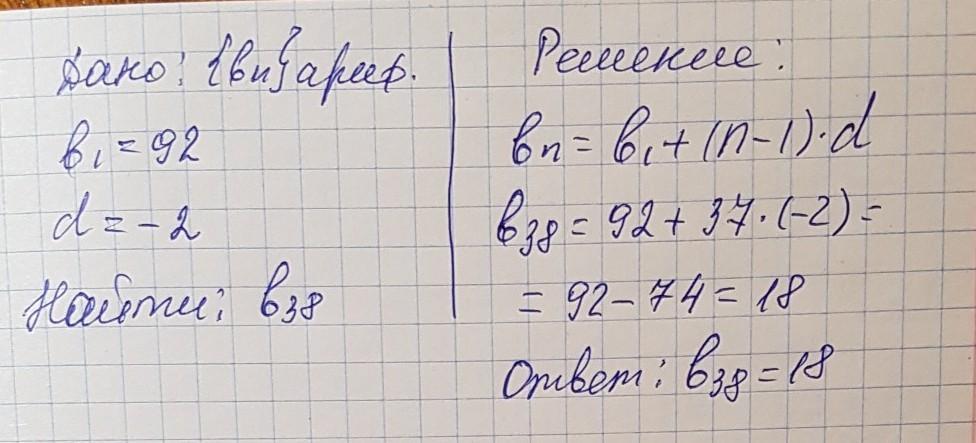 Дано: {bn} ариф.
b1 = 92
d = -2
Найти: b38
Решение:
bn = b1 + (n-1)·d
b38 = 92 + 37·(-2) =
= 92 - 74 = 18
Ответ: b38 = 18